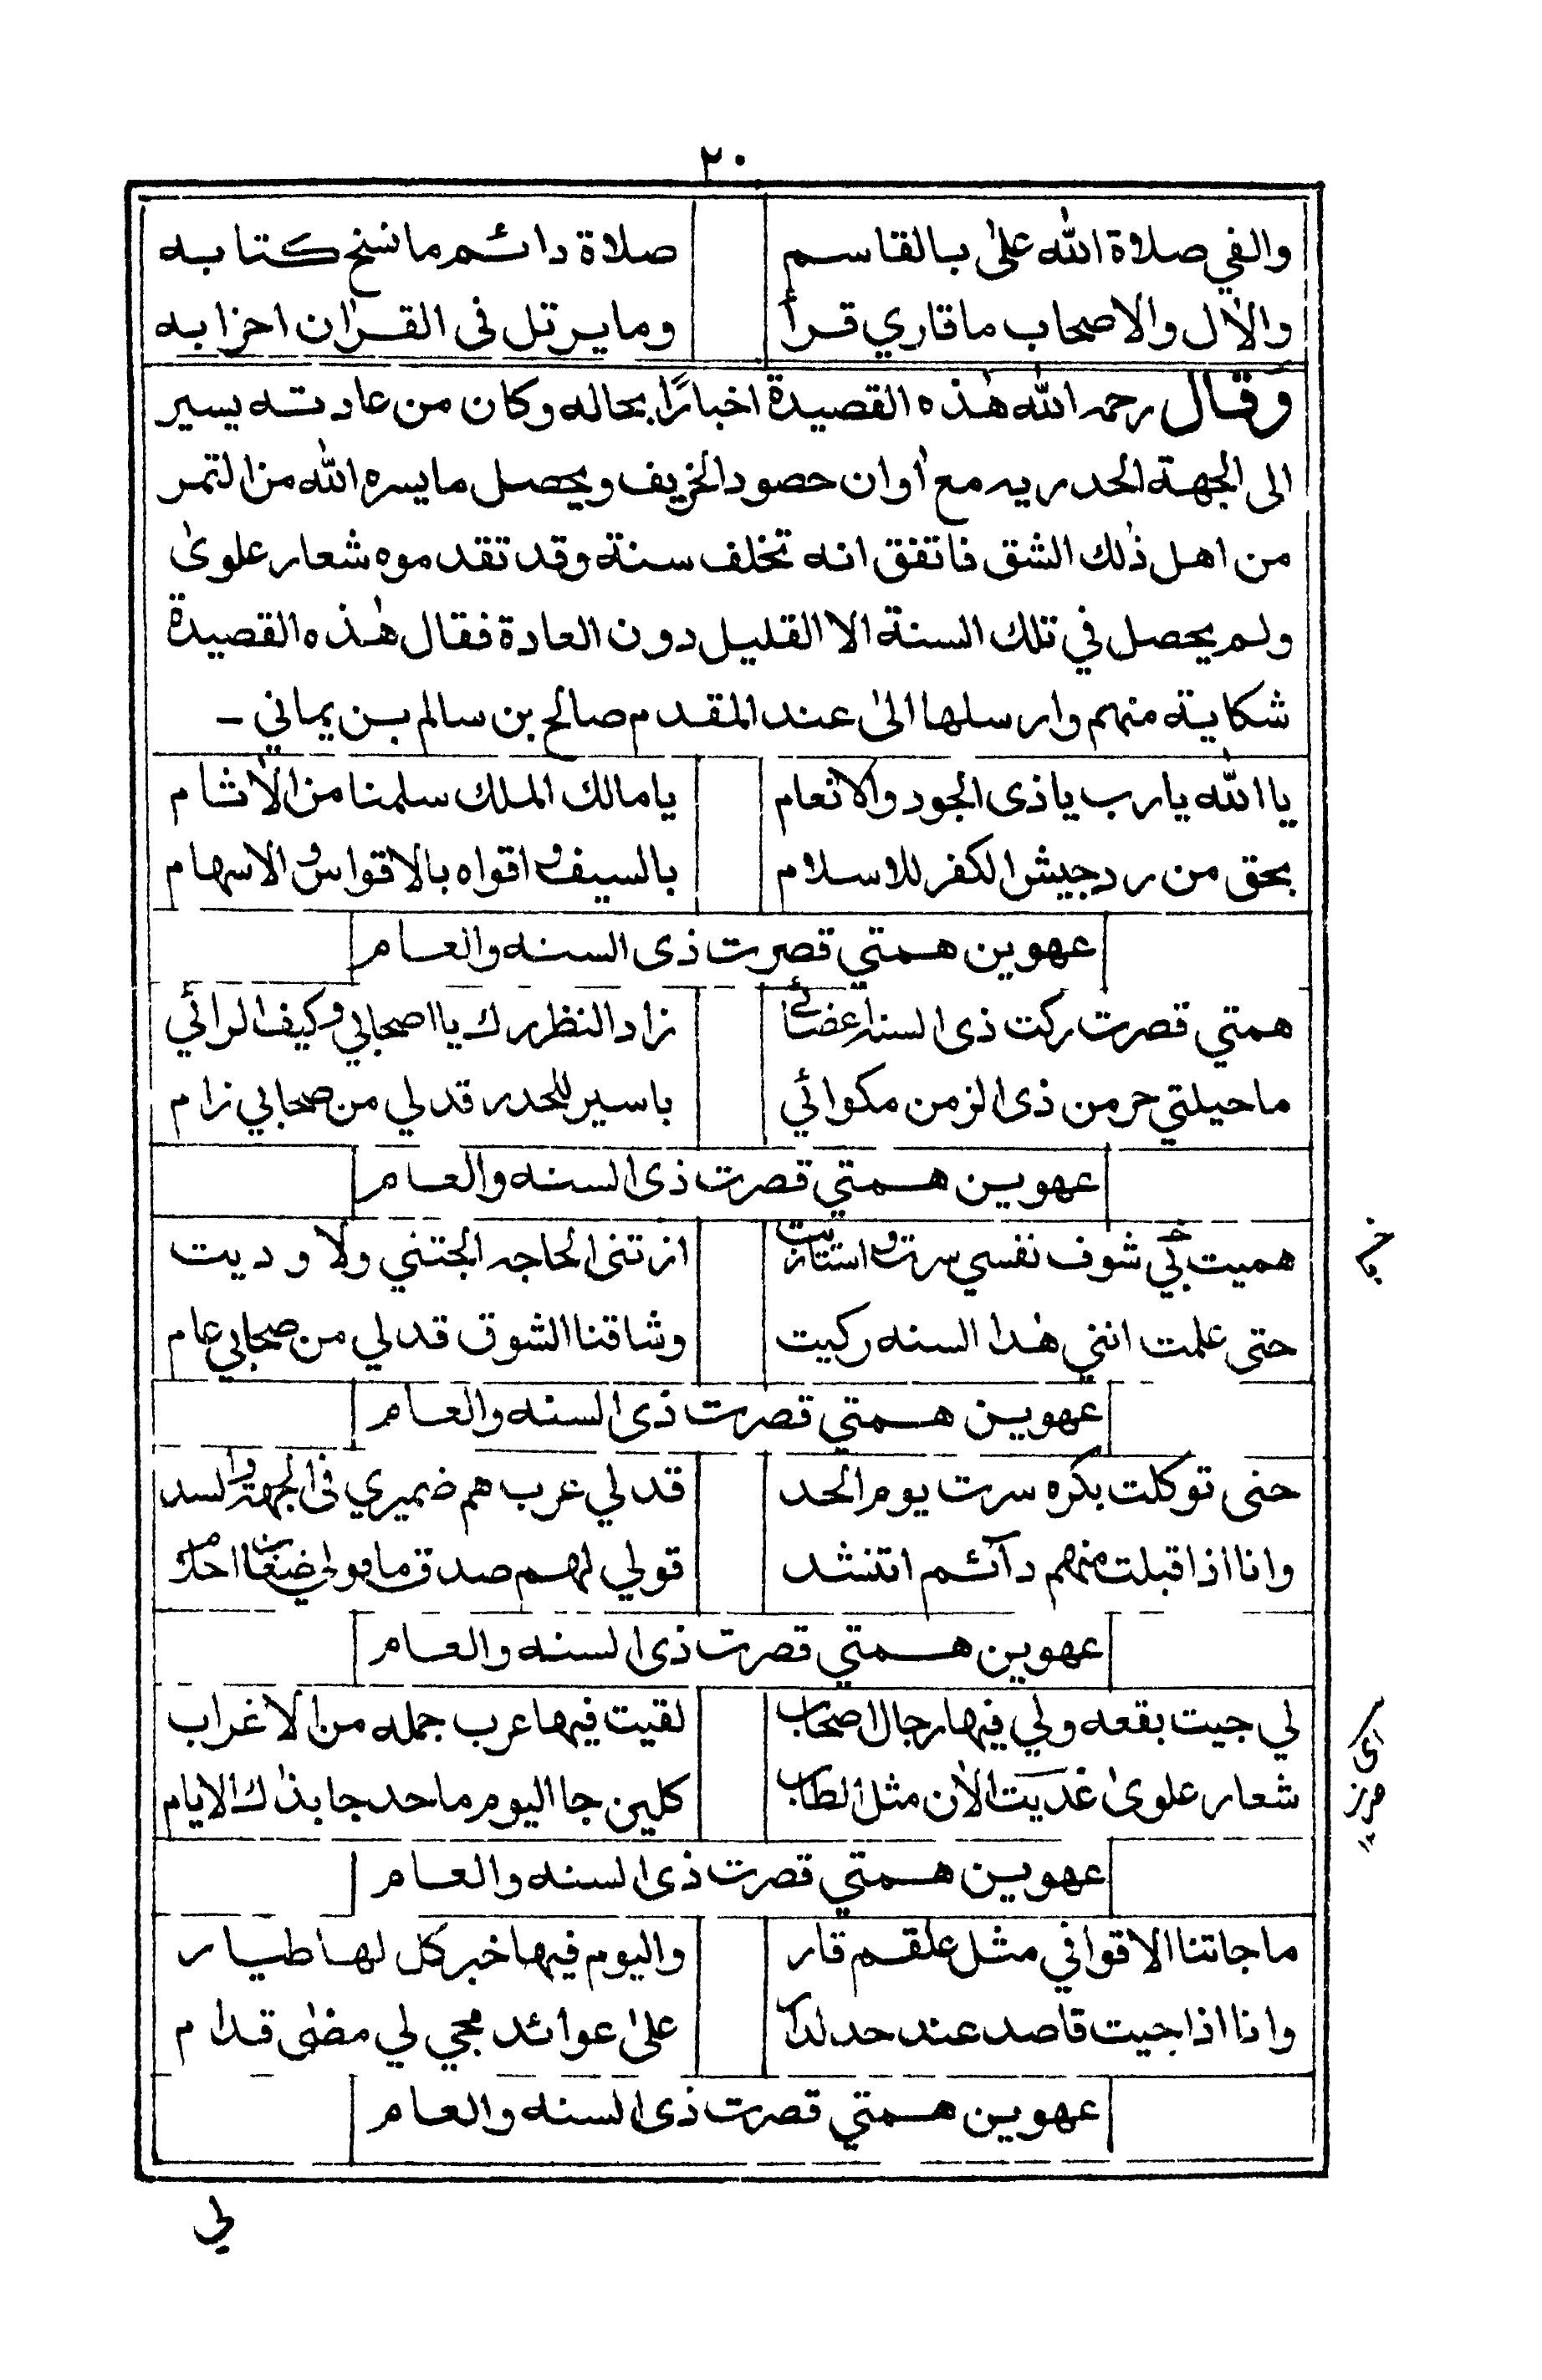 ٢٠
والفي صلاة الله على بالقاسم صلاة دائم مانسخ كتابه
والآل والاصحاب ماقاري قرأ ومايرتل فى القران احزابه
وقال رحمه الله هذه القصيدة اخبارًا بحاله وكان من عادته يسير
الى الجهة الحدريه مع أوان حصود الخريف ويحصل مايسره الله من التمر
من اهل ذلك الشق فاتفق انه تخلف سنة وقد تقدموه شعار علوى
ولم يحصل في تلك السنة الا القليل دون العادة فقال هذه القصيدة
شكاية منهم وارسلها الى عند المقدم صالح بن سالم بن يماني -
يا الله يارب ياذى الجود والانعام يامالك الملك سلمنا من الآثام
بحق من رد جيش الكفر للاسلام بالسيف واقواه بالاقواس والاسهام
عهوين همتي قصرت ذى السنه والعام
همتي قصرت ركت ذى السنه اعضائي زاد النظر رك يا اصحابي وكيف الرائي
ماحيلتي حر من ذى الزمن مكوائي باسير للحدر قدلي من صحابي زام
عهوين همتي قصرت ذى السنه والعام
هميت بخي شوف نفسي سرت واستازيت ازتنى الحاجه الجتني ولا وديت
حتى علمت انني هذا السنه ركيت وشاقنا الشوق قدلي من صحابي عام
عهوين همتي قصرت ذى السنه والعام
حنى توكلت بكره سرت يوم الحد قدلي عرب هم ضميري فى الجهة والسد
وانا اذا قبلت منهم دآئم اتنشد قولي لهم صدق ماهولي احد
عهوين همتي قصرت ذى السنه والعام
لي جيت بقعه ولي فيها رجال اصحاب لقيت فيها عرب جمله من الاغراب
شعار علوى غديت الآن مثل الطلاب كلين جا اليوم ماحد جا بذاك الايام
عهوين همتي قصرت ذى السنه والعام
ماجاتنا الاقوافي مثل علقم قار واليوم فيها خبر كل لها طيار
وانا اذا جيت قاصد عند حد لدار على عوائد مجي لي مضى قدام
عهوين همتي قصرت ذى السنه والعام
لي